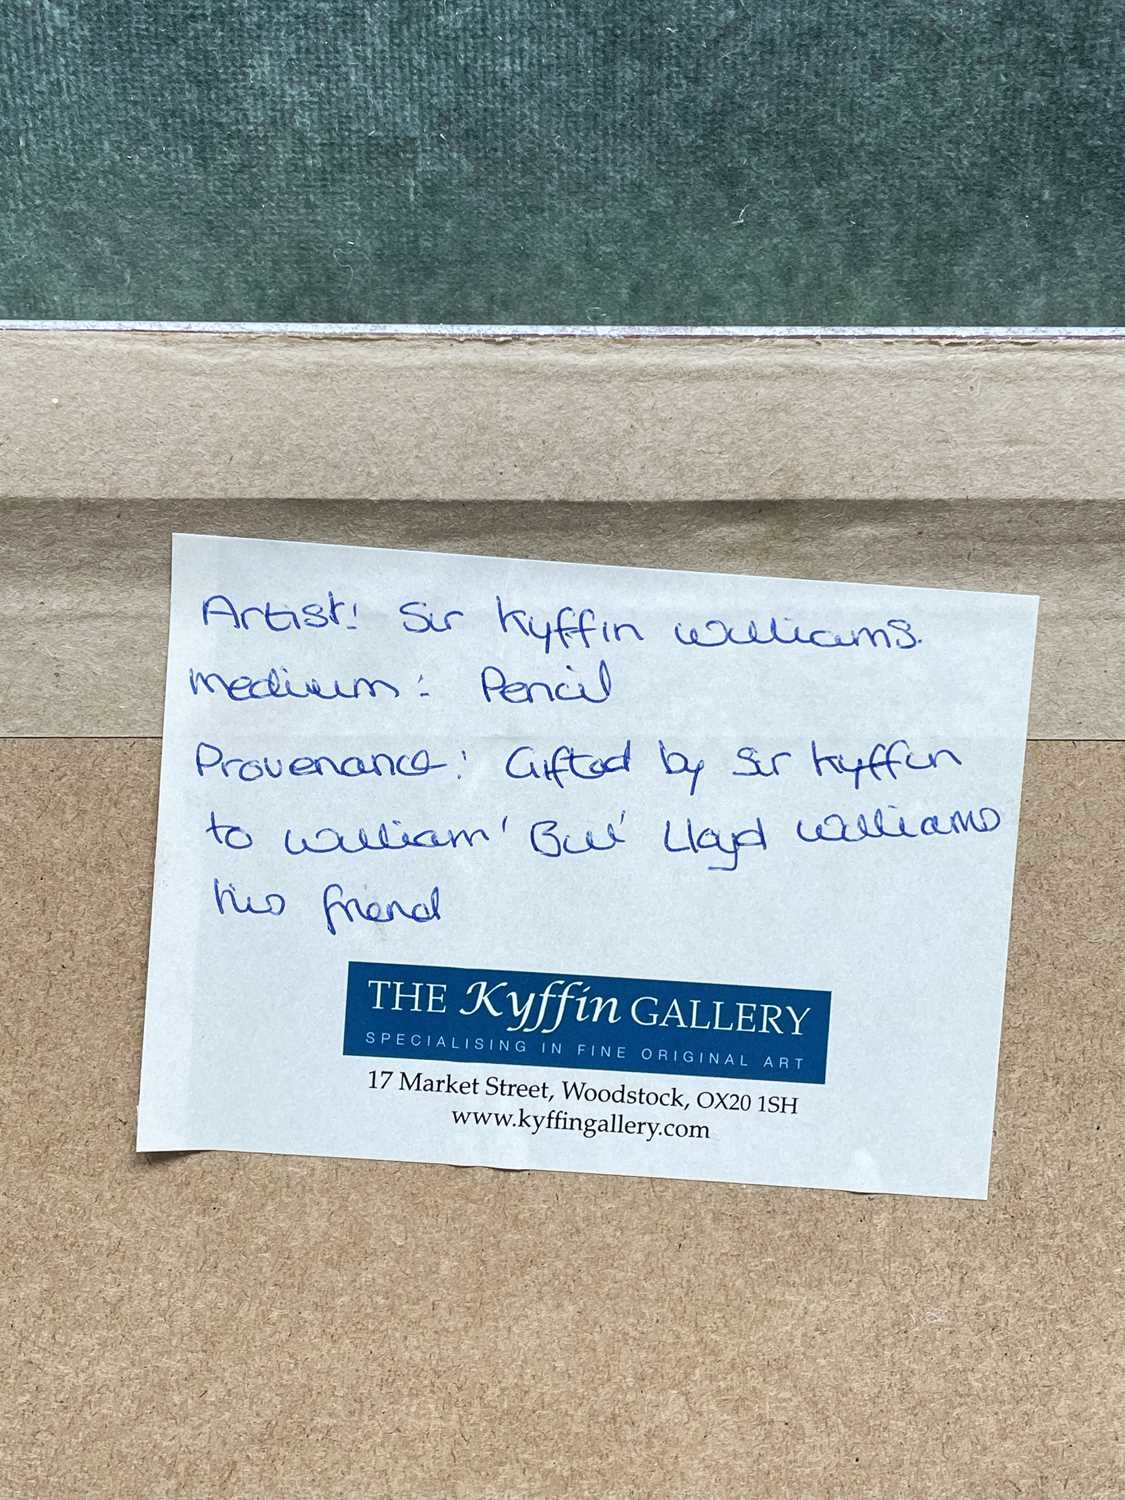 Artist: Sir Kyffin Williams.
Medium: Pencil
Provenance: Gifted by Sir Kyffin
to William 'Bill' Lloyd Williams
his friend
THE Kyffin GALLERY
SPECIALISING IN FINE ORIGINAL ART
17 Market Street, Woodstock, OX20 1SH
www.kyffingallery.com